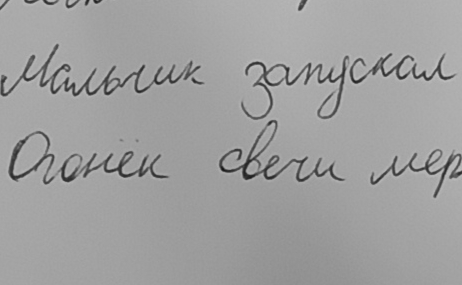 Мальчик запускал
Огонёк свечи мер